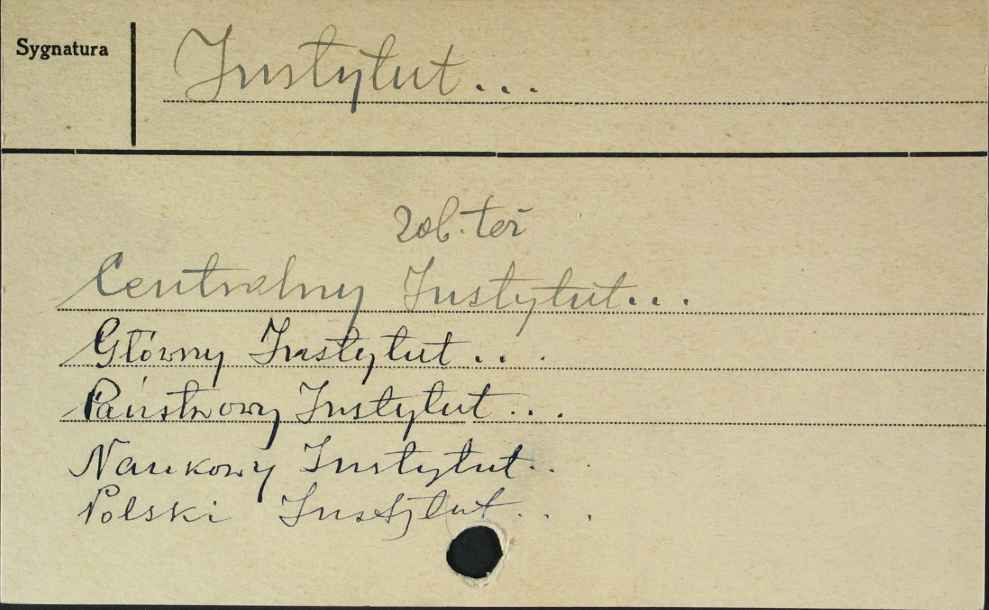 Sygnatura
Instytut...
Zob. też
Centralny Instytut...
Główny Instytut...
Państwowy Instytut...
Naukowy Instytut...
Polski Instytut...